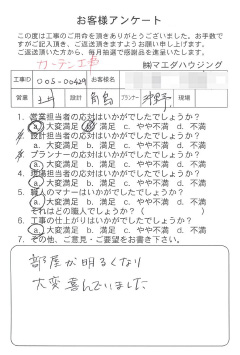 お客様アンケート
この度は工事のご用命を頂きありがとうございました。お手数で
すがご記入頂き、ご返送頂きますようお願い申し上げます。
ご返送頂いた方から、毎月抽選で感謝品を進呈致します。
カーテン工事
㈱マエダハウジング
工事ID 005-00429 お客様名
営業 設計 角島 プランナー 現場
1. 営業担当者の応対はいかがでしたでしょうか?
a. 大変満足 b. 満足 c. やや不満 d. 不満
2. 設計担当者の応対はいかがでしたでしょうか?
a. 大変満足 b. 満足 c. やや不満 d. 不満
3. プランナーの応対はいかがでしたでしょうか?
a. 大変満足 b. 満足 c. やや不満 d. 不満
4. 現場担当者の応対はいかがでしたでしょうか?
a. 大変満足 b. 満足 c. やや不満 d. 不満
5. 職人のマナーはいかがでしたでしょうか?
a. 大変満足 b. 満足 c. やや不満 d. 不満
それはどの職人でしょうか?( )
6. 工事の仕上がりはいかがでしたでしょうか?
a. 大変満足 b. 満足 c. やや不満 d. 不満
7. その他、ご意見・ご要望をお書き下さい。
部屋が明るくなり
大変喜んでいました